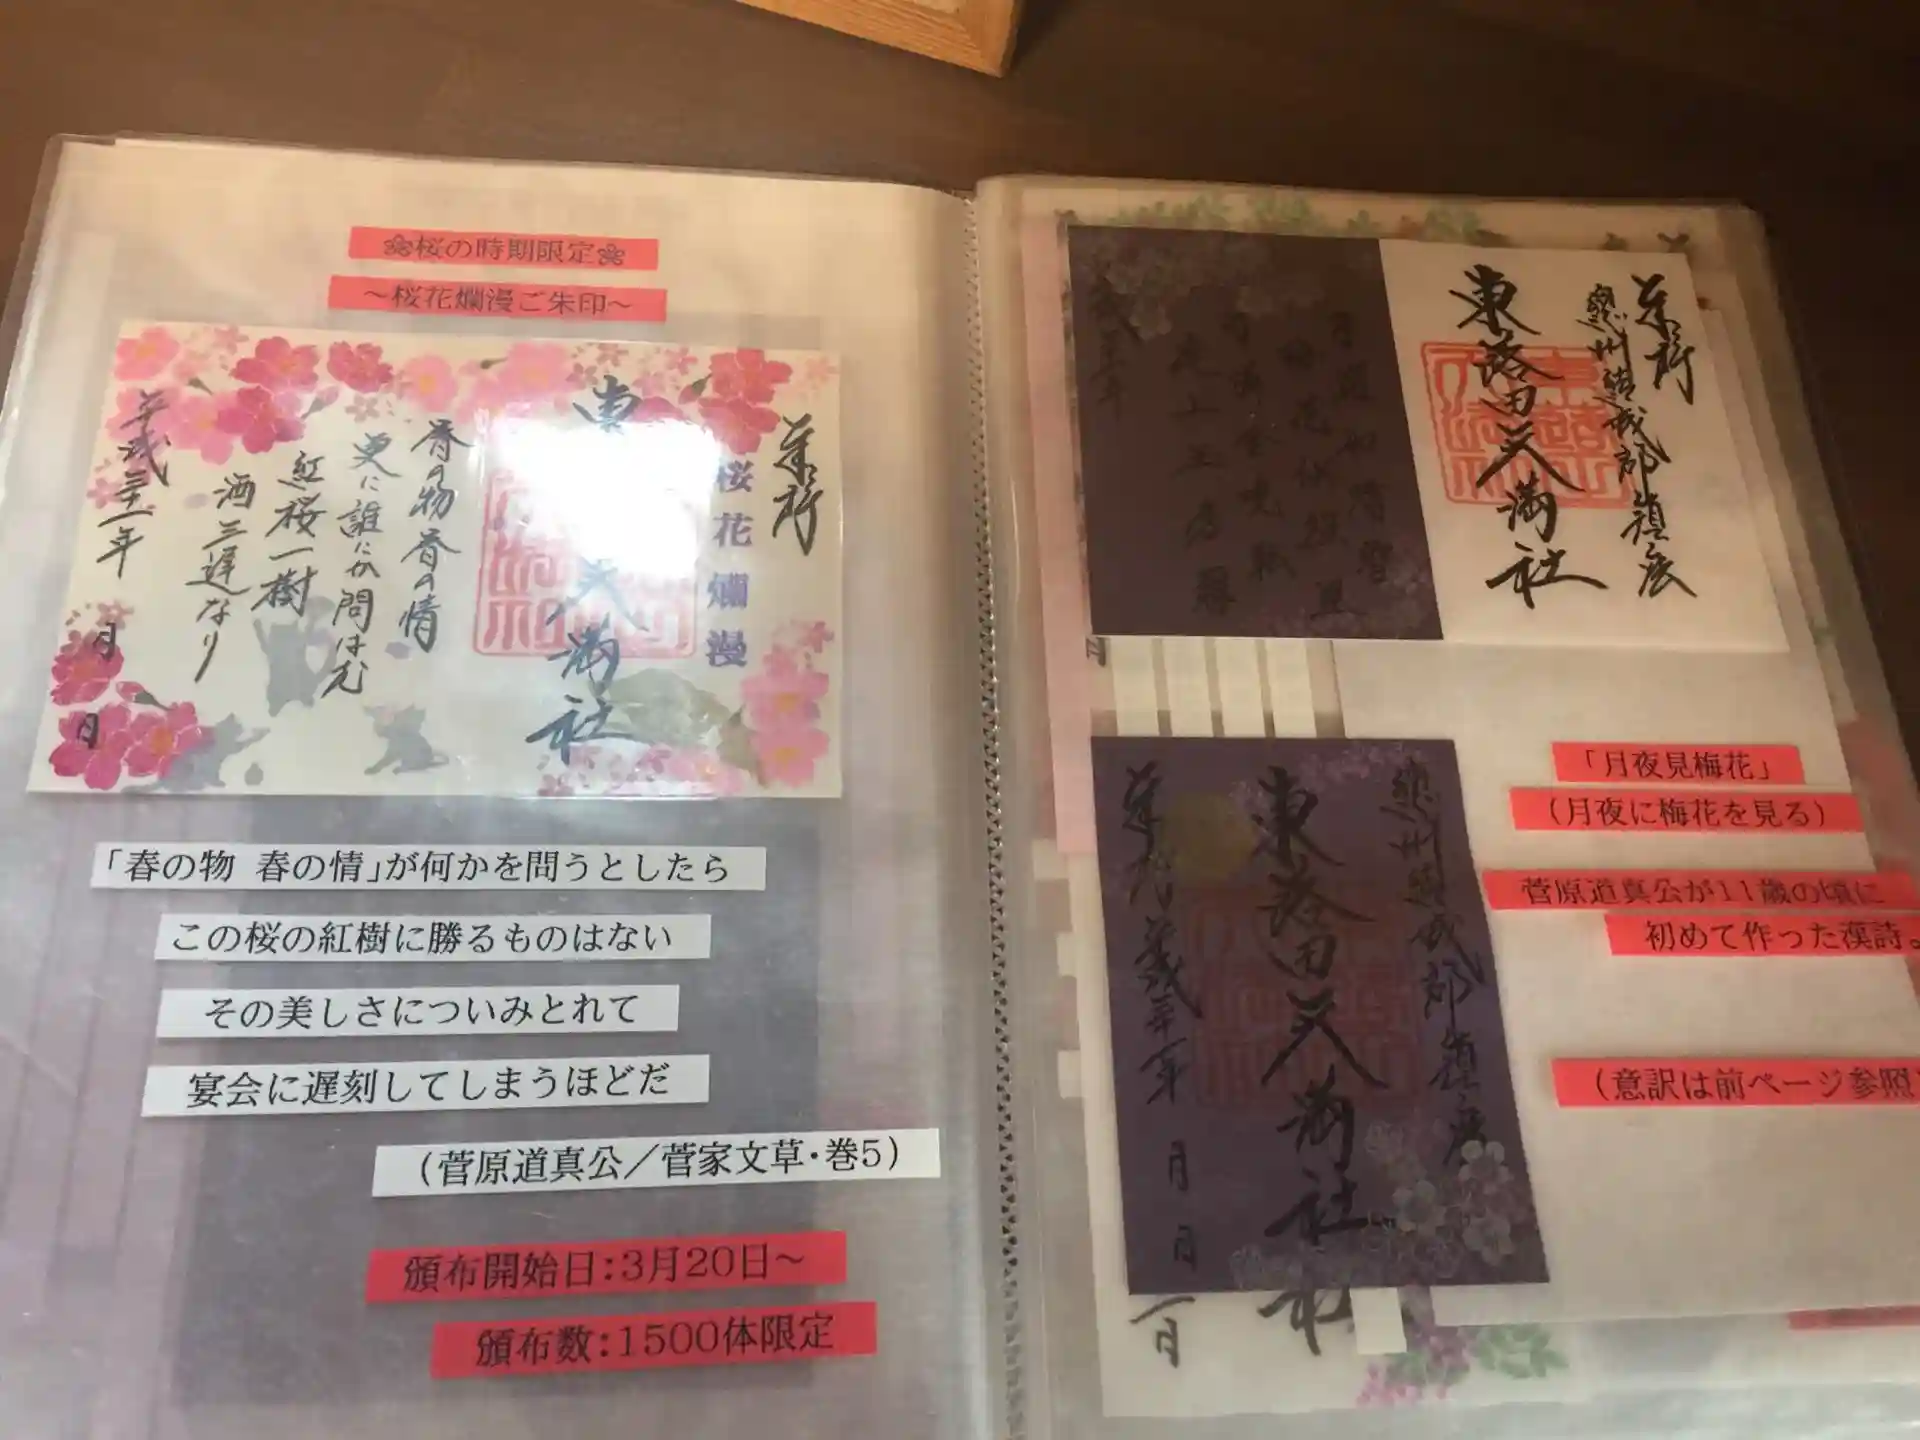 ❀桜の時期限定❀
～桜花爛漫ご朱印～
奉拝
桜花爛漫
天満社
春の物春の情
更に誰にか問はむ
紅桜一樹
酒三遅なり
平成三十一年
月
日
「春の物 春の情」が何かを問うとしたら
この桜の紅樹に勝るものはない
その美しさについみとれて
宴会に遅刻してしまうほどだ
（菅原道真公／菅家文草・巻5）
頒布開始日：3月20日～
頒布数：1500体限定
奉拝
總州結城郡鎮座
東蕗田天満社
總州結城郡鎮座
東蕗田天満社
奉拝
月
日
「月夜見梅花」
（月夜に梅花を見る）
菅原道真公が11歳の頃に
初めて作った漢詩。
（意訳は前ページ参照）